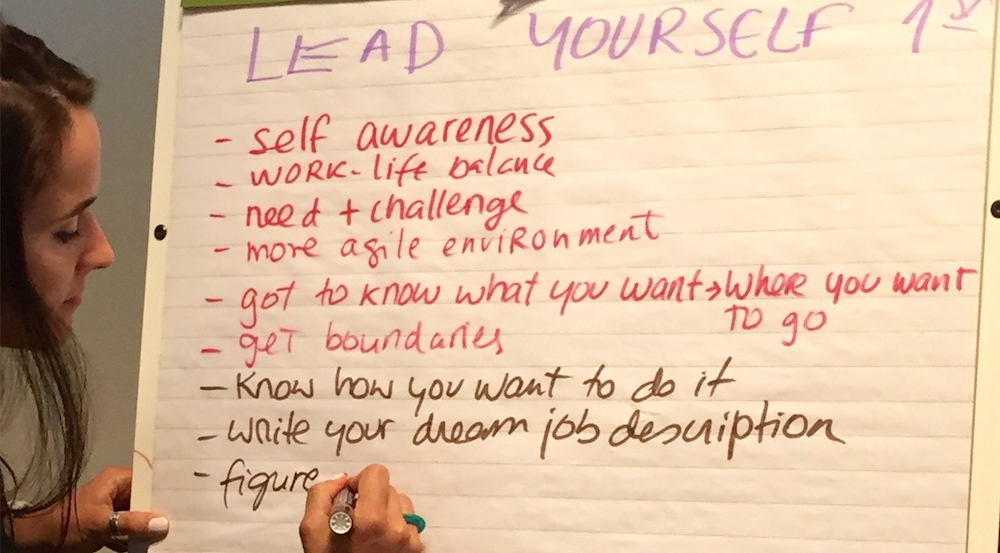 LEAD YOURSELF 1st
- self awareness
- WORK-life balance
- need + challenge
- more agile enviRonment
- got to know what you want → Where you want
To go
- get boundaries
- Know how you want to do it
- write your dream job description
- figure